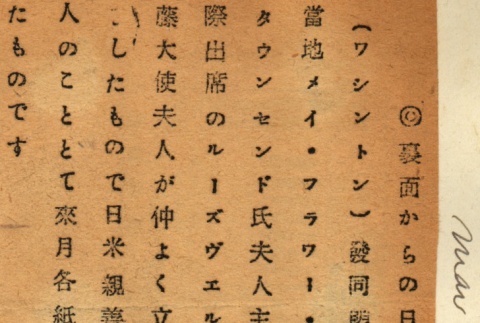 ◎裏面からの日
(ワシントン)發同盟
當地メイ・フラワー・
タウンセンド氏夫人主
際出席のルーズヴエル
藤大使夫人が仲よく立
したもので日米親善
人のこととて來月各紙
たものです